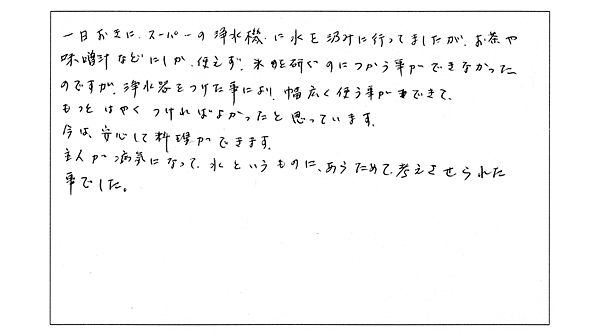 一日おきに、スーパーの浄水機に水を汲みに行ってましたが、お茶や
味噌汁などにしか、使えず、米を研ぐのにつかう事ができなかった
のですが、浄水器をつけた事により、幅広く使う事ができて、
もっとはやくつければよかったと思っています。
今は、安心して料理ができます。
主人が病気になって、水というものに、あらためて考えさせられた
事でした。